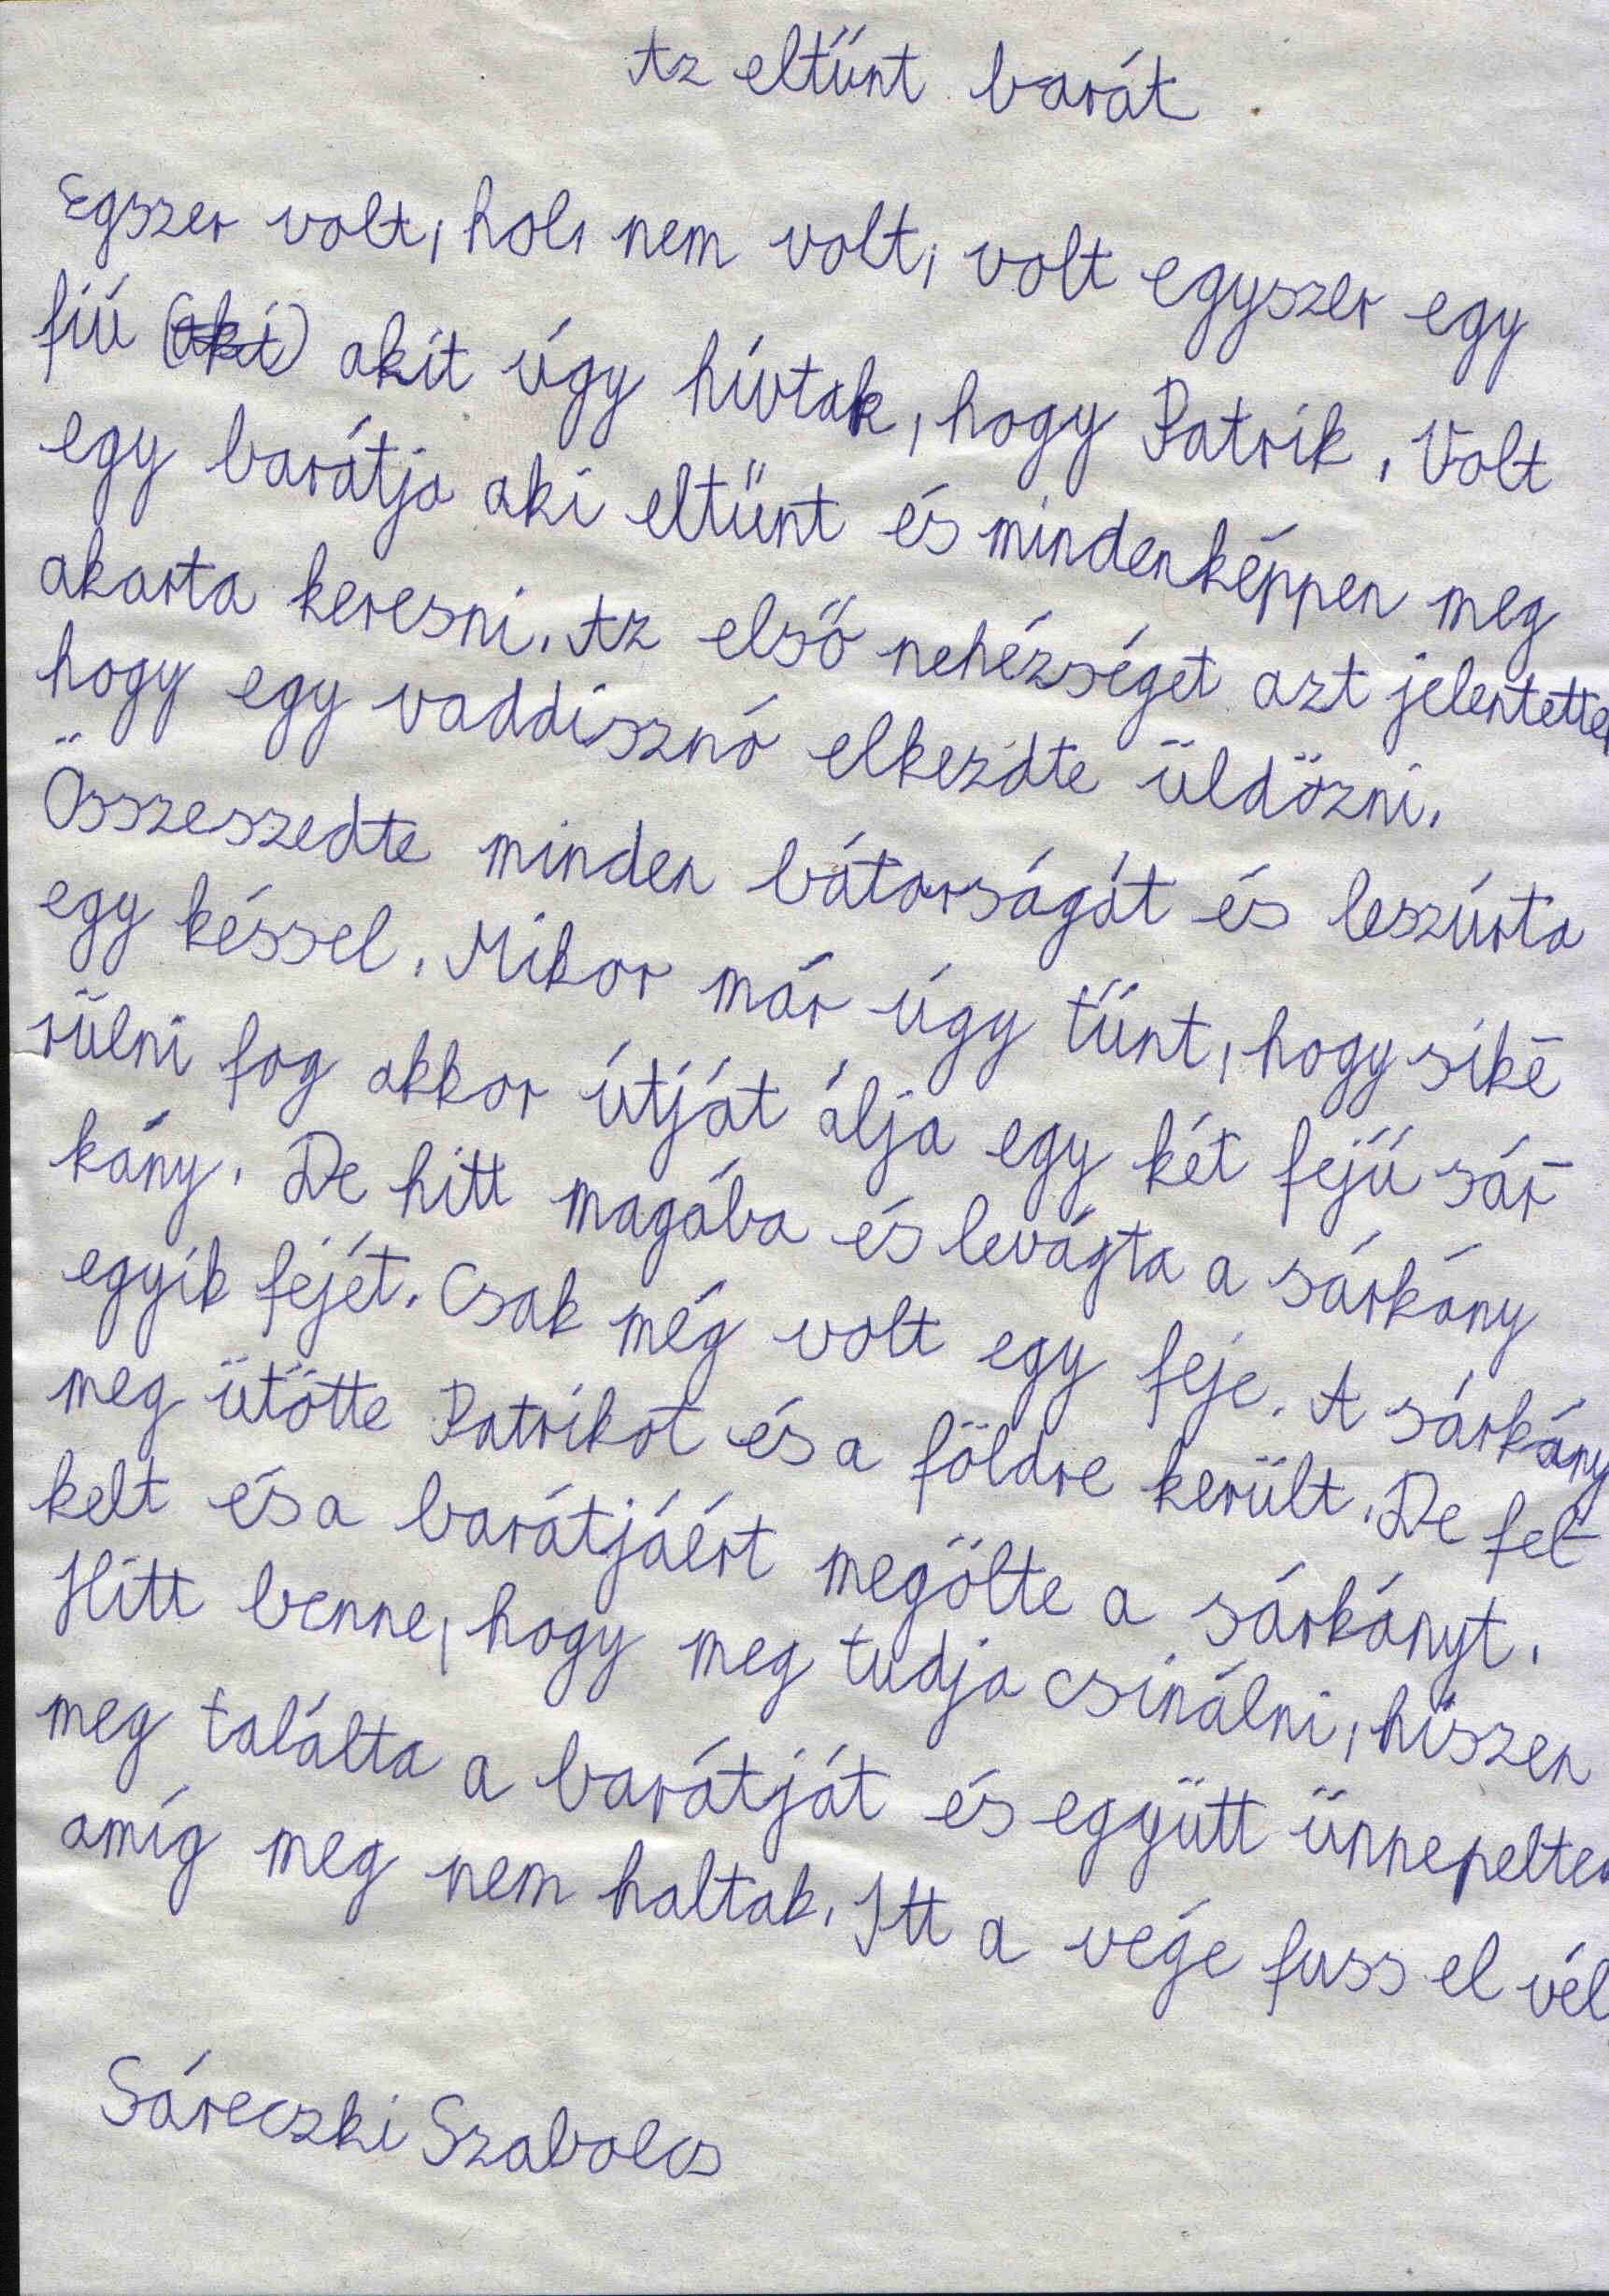 Az eltűnt barát
Egszer volt, hol, nem volt, volt egyszer egy
fiú (aki) akit úgy hívtak, hogy Patrik. Volt
egy barátja aki eltűnt és mindenképpen meg
akarta keresni. Az első nehézséget azt jelentette
hogy egy vaddisznó elkezdte üldözni.
Összeszedte minden bátorságát és leszúrta
egy késsel. Mikor már úgy tűnt, hogy sike
rülni fog akkor útját álja egy két fejű sár-
kány. De hitt magába és levágta a sárkány
egyik fejét. Csak még volt egy feje. A sárkány
meg ütötte Patrikot és a földre került. De fel-
kelt és a barátjáért megölte a sárkányt.
Hitt benne, hogy meg tudja csinálni, hiszen
meg találta a barátját és együtt ünnepelte
amíg meg nem haltak. Itt a vége fuss el vél
Sáreczki Szabolcs